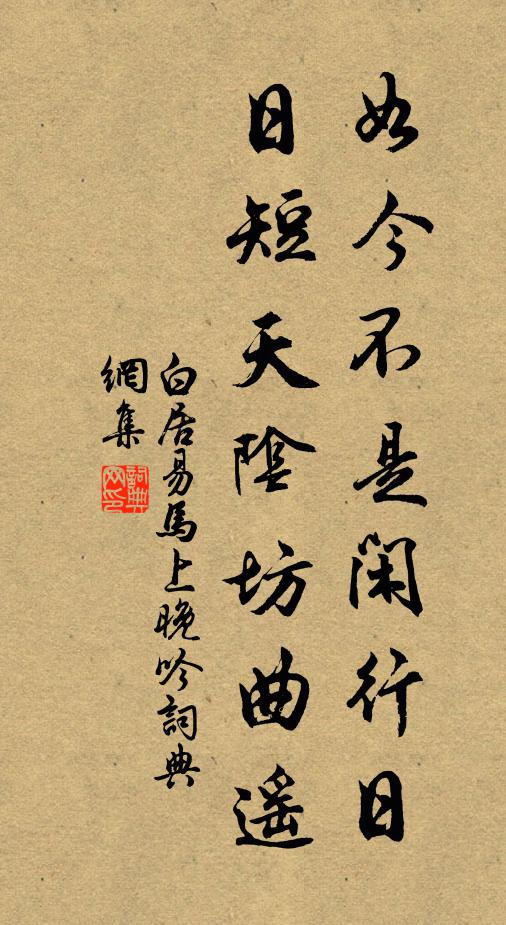 如今不是閑行日
日短天陰坊曲遥
白居易馬上晚吟詞典
網集
詞典
网印